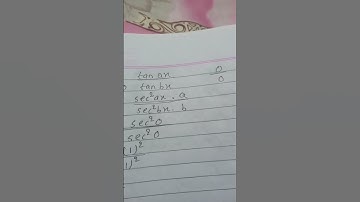 tan ax 0
tan bx 0
sec²ax . a
sec²bx . b
sec²0
sec²0
(1)²
1)²